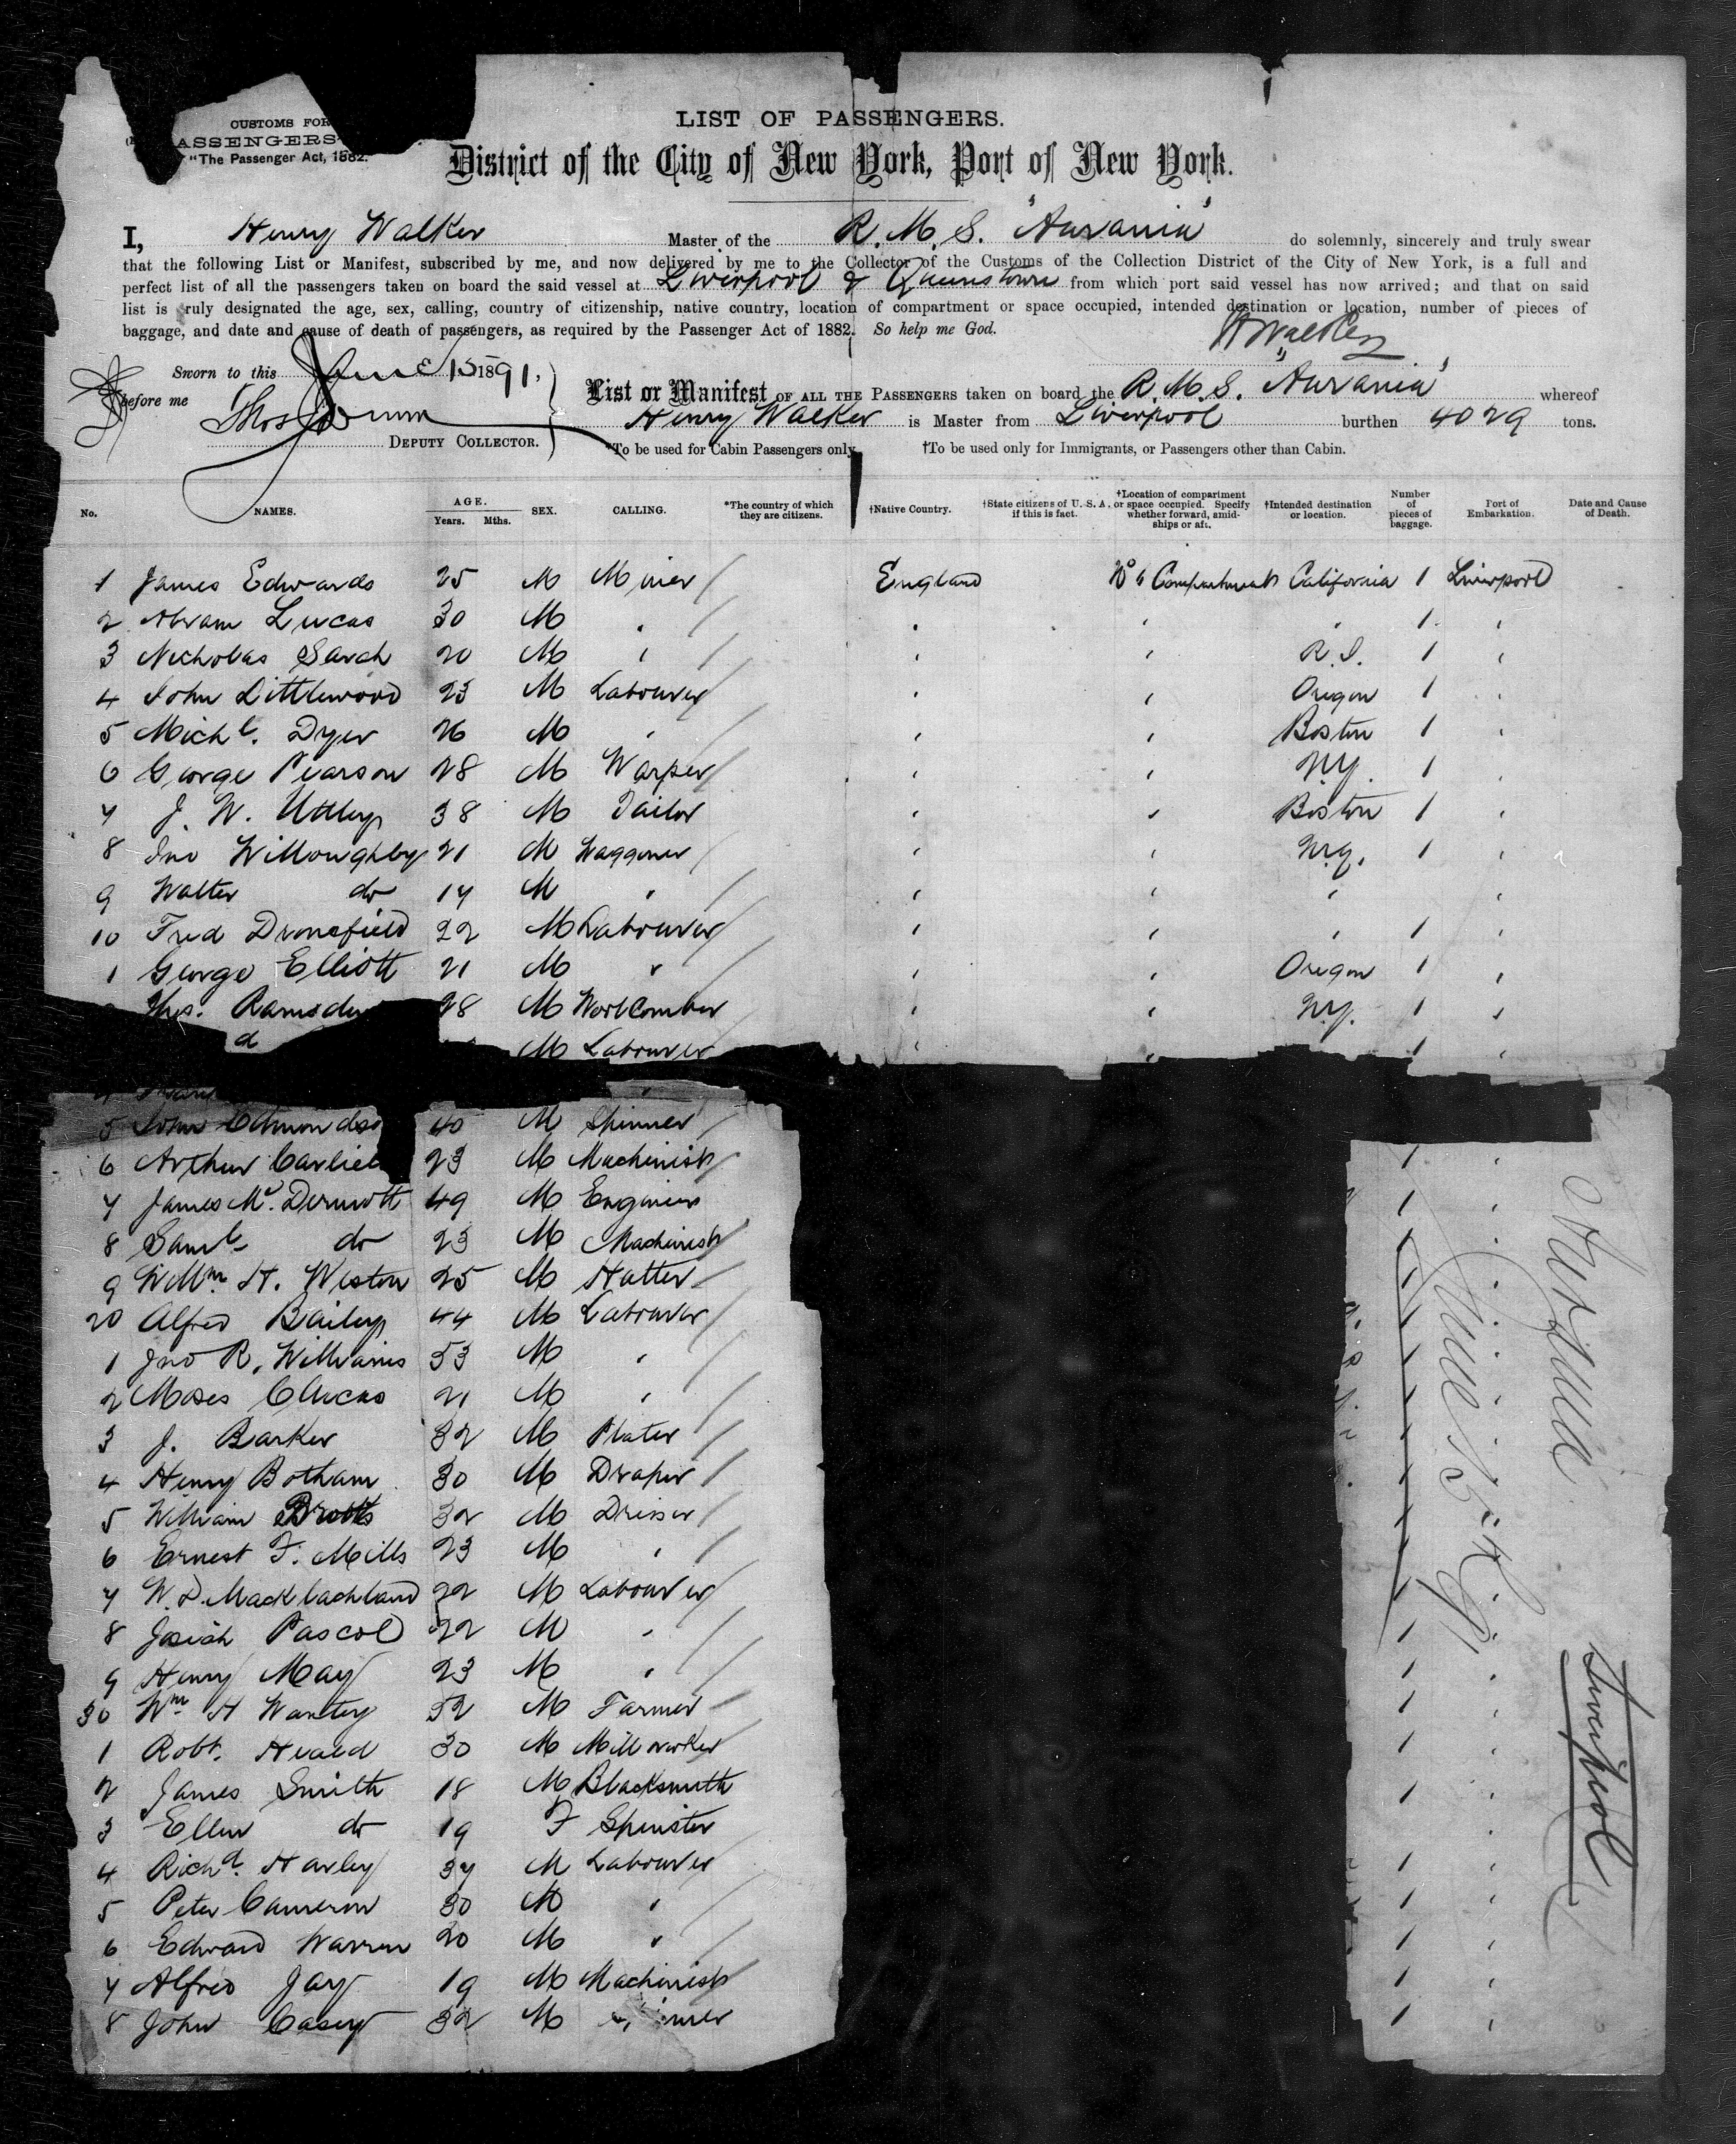 CUSTOMS FOR
ASSENGERS
"The Passenger Act, 1882.
LIST OF PASSENGERS.
District of the City of New York, Port of New York.
I, Henry Walker Master of the R. M. S. "Aurania" do solemnly, sincerely and truly swear
that the following List or Manifest, subscribed by me, and now delivered by me to the Collector of the Customs of the Collection District of the City of New York, is a full and
perfect list of all the passengers taken on board the said vessel at Liverpool & Queenstown from which port said vessel has now arrived; and that on said
list is ruly designated the age, sex, calling, country of citizenship, native country, location of compartment or space occupied, intended destination or location, number of pieces of
baggage, and date and cause of death of passengers, as required by the Passenger Act of 1882. So help me God.
H Walker
Sworn to this June 15 1891.
before me Thos
DEPUTY COLLECTOR.
List or Manifest OF ALL THE PASSENGERS taken on board the R. M. S. "Aurania" whereof
Henry Walker is Master from Liverpool burthen 4029 tons.
*To be used for Cabin Passengers only. †To be used only for Immigrants, or Passengers other than Cabin.
No. NAMES. AGE. Years. Mths. SEX. CALLING. *The country of which they are citizens. †Native Country. †State citizens of U. S. A., if this is fact. †Location of compartment or space occupied. Specify whether forward, amidships or aft. †Intended destination or location. Number of pieces of baggage. Port of Embarkation. Date and Cause of Death.
1 James Edwards 25 M Miner England No 6 Compartment California 1 Liverpool
2 Abram Lucas 30 M " " " " 1 "
3 Nicholas Sarah 20 M " " " R.I. 1 "
4 John Littlewood 23 M Labourer " " Oregon 1 "
5 Michl. Dyer 26 M " " " Boston 1 "
6 George Pearson 28 M Warper " " N.Y. 1 "
7 J. W. Uttley 38 M Tailor " " Boston 1 "
8 Jno Willoughby 21 M Waggoner " " N.Y. 1 "
9 Walter do 17 M " " " " "
10 Fred Dronsfield 22 M Labourer " " " 1 "
1 George Elliott 21 M " " " Oregon 1 "
Thos. Ramsden 28 M Woolcomber " " N.Y. 1 "
d M Labourer " " 1 "
4 "
5 John Edmondso 40 M Spinner
6 Arthur Carliel 23 M Machinist 1 "
7 James McDermott 49 M Engineer 1 "
8 Saml do 23 M Machinist 1 "
9 Willm H. Weston 25 M Hatter 1 "
20 Alfred Bailey 44 M Labourer 1 "
1 Jno R. Williams 53 M " 1 "
2 Moses Clucas 21 M " 1 "
3 J. Barker 32 M Plater 1 "
4 Henry Botham 30 M Draper 1 "
5 William Brooks 32 M Dresser 1 "
6 Ernest F. Mills 23 M " 1 "
7 W. D. MackLachland 22 M Labourer 1 "
8 Josiah Pascol 22 M " 1 "
9 Henry May 23 M " 1 "
30 Wm H Wantey 52 M Farmer 1 "
1 Robt. Heald 30 M Millworker 1 "
2 James Smith 18 M Blacksmith 1 "
3 Ellen do 19 F Spinster "
4 Richd. Harley 37 M Labourer 1 "
5 Peter Cameron 30 M " 1 "
6 Edward Warren 20 M " 1 "
7 Alfred Jay 19 M Machinist 1 "
8 John Casey 32 M 1 "
Aurania
June 15th 91
Liverpool